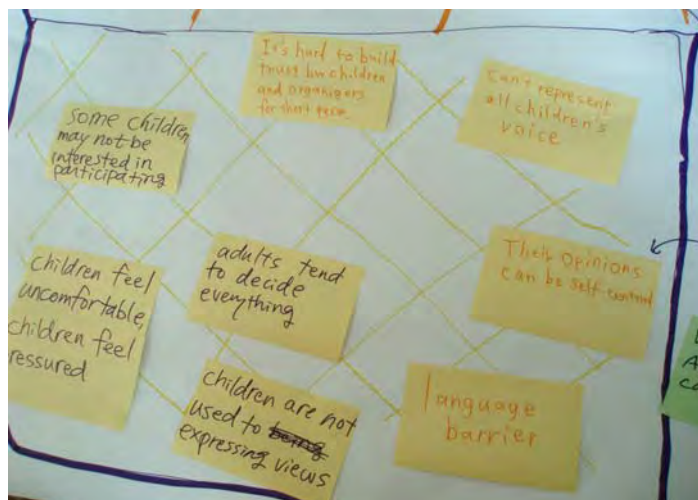 It's hard to build
trust b/w children
and organizers
for short term
can't represent
all children's
voice
some children
may not be
interested in
participating
children feel
uncomfortable,
children feel
ressured
adults tend
to decide
everything
Their opinions
can be self-control
children are not
used to
expressing views
language
barrier